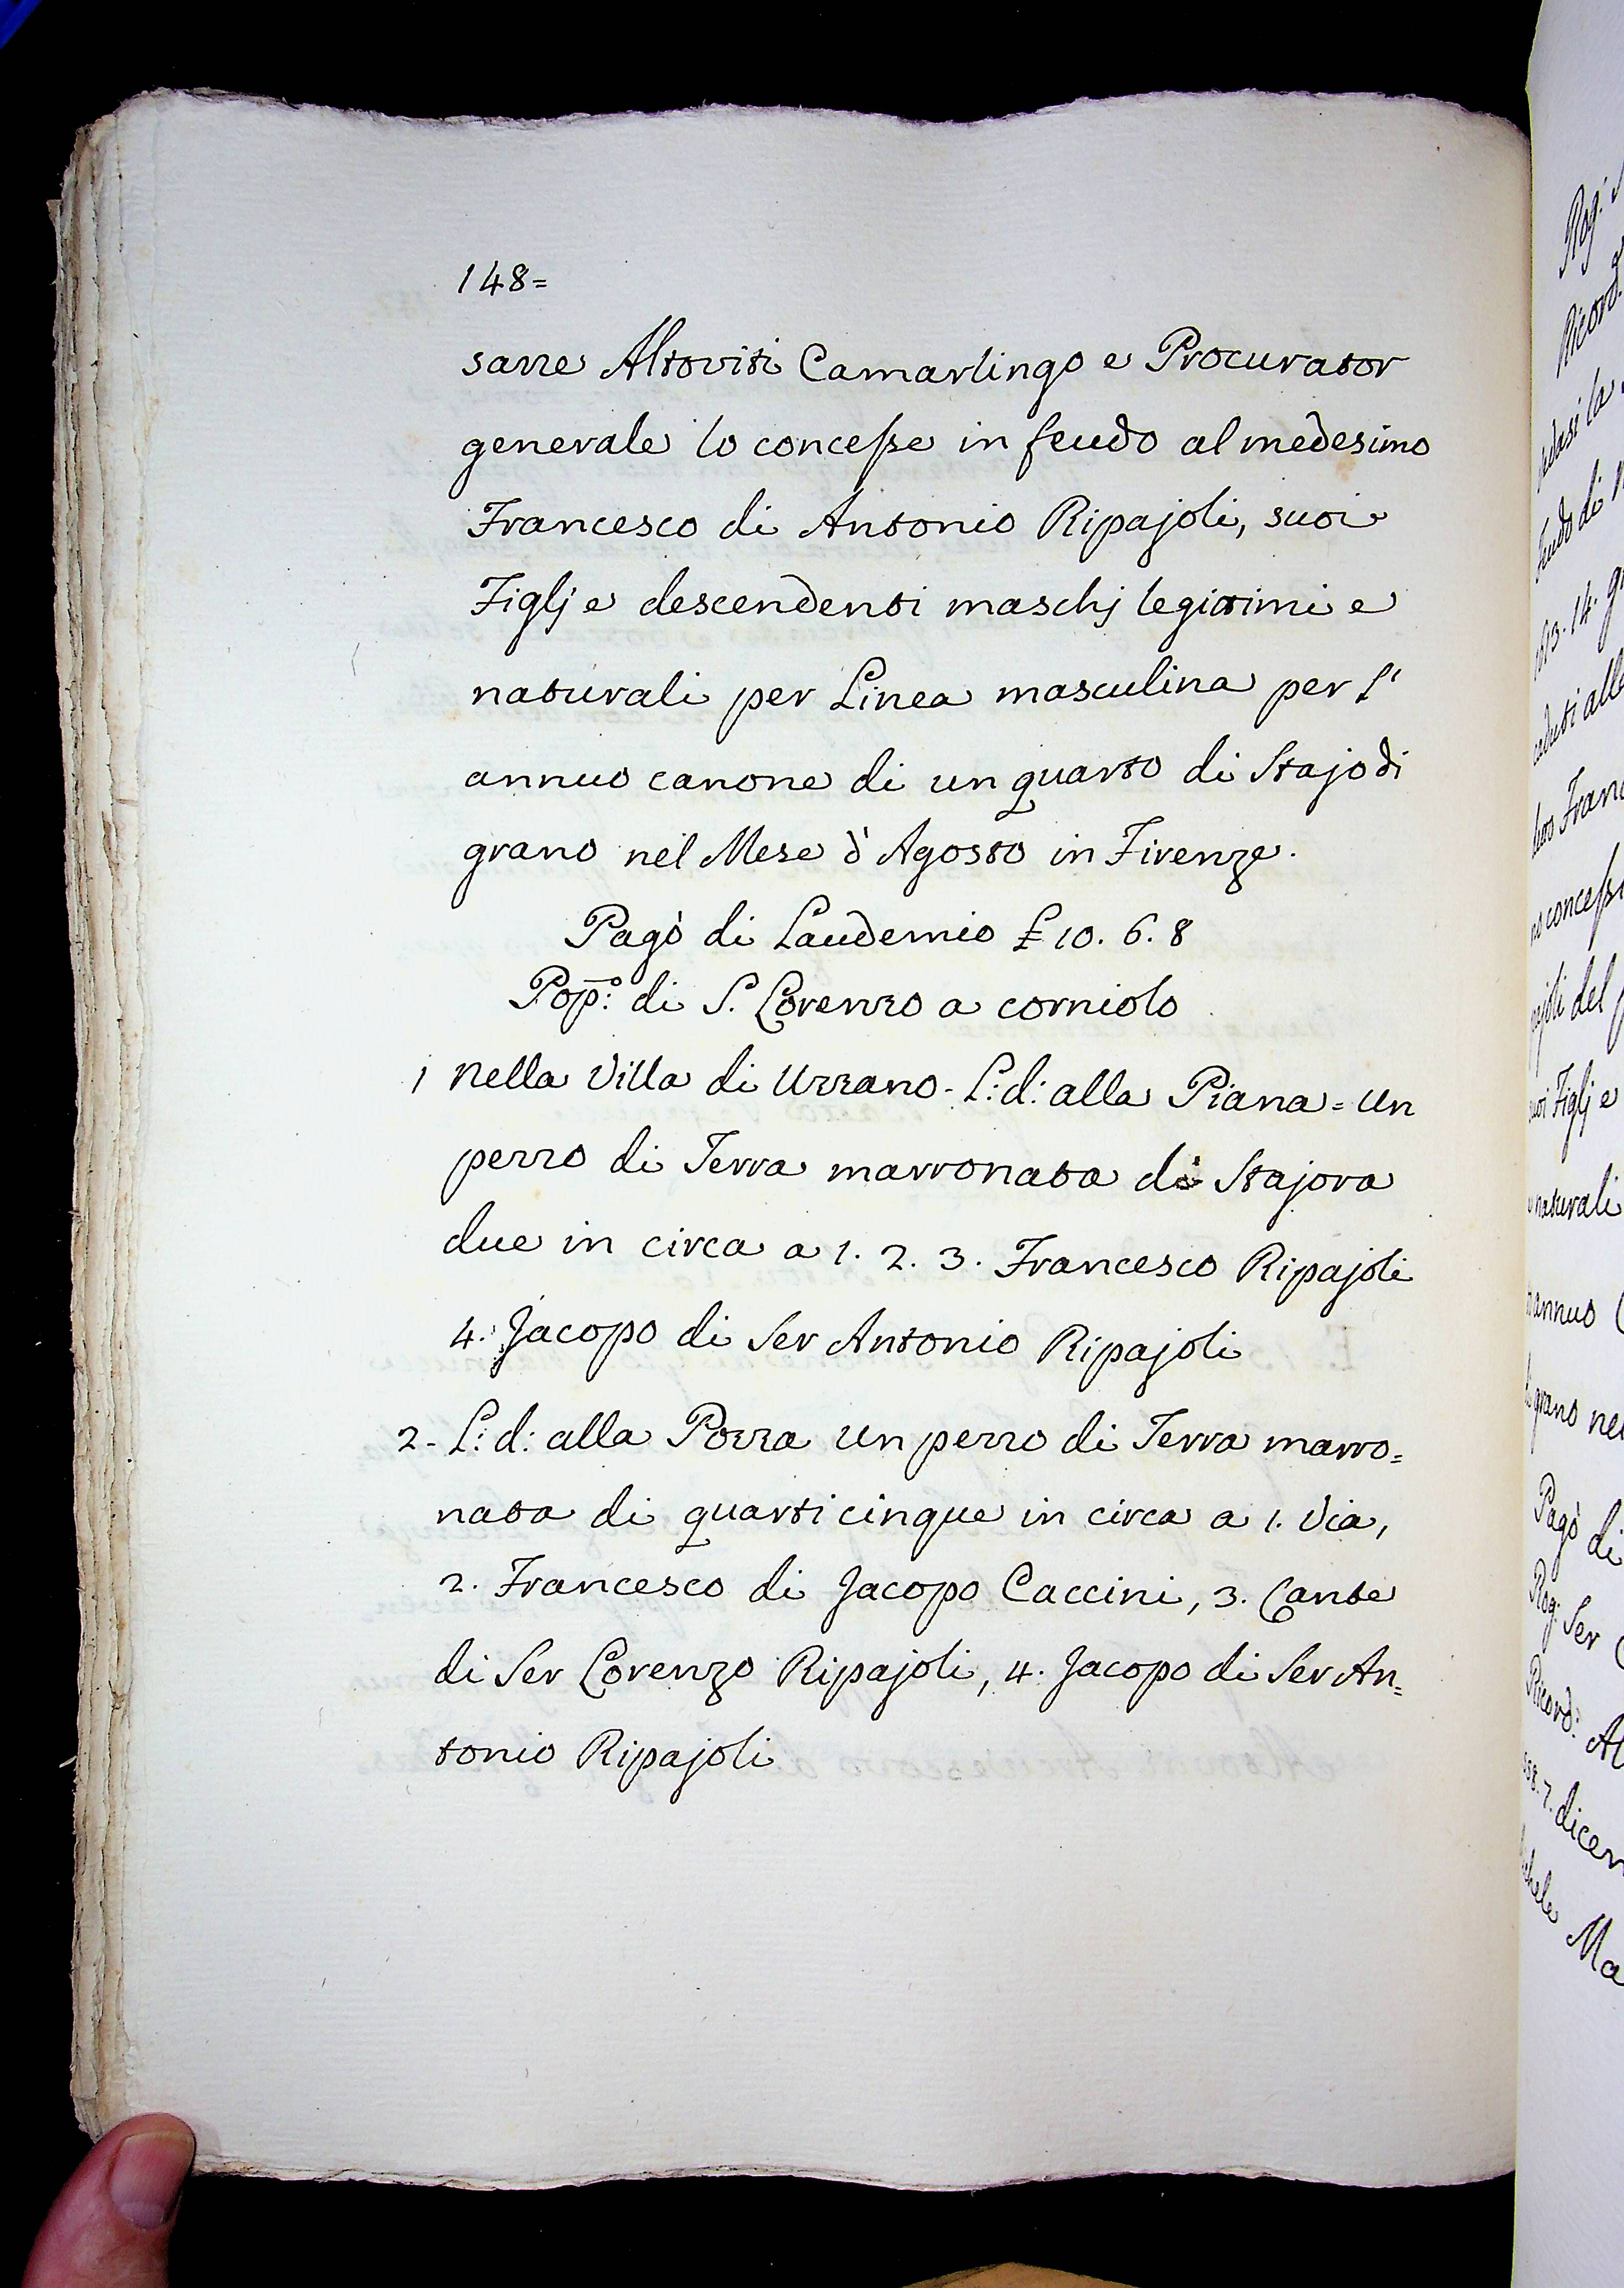 148=
sarre Altoviti Camarlingo e Procurator
generale lo concesse in feudo al medesimo
Francesco di Antonio Ripajoli, suoi
Figlj e descendenti maschj legitimi e
naturali per Linea masculina per l'
annuo canone di un quarto di Stajo di
grano nel Mese d'Agosto in Firenze.
Pagò di Laudemio £ 10. 6. 8
Pop:º di S. Lorenzo a corniolo
1 nella Villa di Uzzano - L: d: alla Piana = un
pezzo di Terra marronata di Stajora
due in circa a 1. 2. 3. Francesco Ripajoli
4. Jacopo di Ser Antonio Ripajoli
2. L: d: alla Pozza un pezzo di Terra marro=
nata di quarti cinque in circa a 1. Via,
2. Francesco di Jacopo Caccini, 3. Cante
di Ser Lorenzo Ripajoli, 4. Jacopo di Ser An=
tonio Ripajoli
Rog:
Ricord
feudo di
1613. 14.
Franc
concess
del
Figlj e
naturali
annuo
grano nel
Pagò di
Rog: Ser
Ricord: Al
7. dicem
Ma